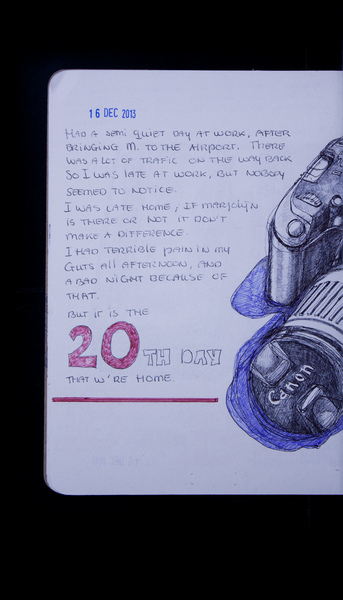 16 DEC 2013
HAD A SEMI QUIET DAY AT WORK, AFTER
BRINGING M. TO THE AIRPORT. THERE
WAS A LOT OF TRAFIC ON THE WAY BACK
SO I WAS LATE AT WORK, BUT NOBODY
SEEMED TO NOTICE.
I WAS LATE HOME, IF MARJOLYN
IS THERE OR NOT IT DON'T
MAKE A DIFFERENCE.
I HAD TERRIBLE PAIN IN MY
GUTS ALL AFTERNOON, AND
A BAD NIGHT BECAUSE OF
THAT.
BUT IT IS THE
20TH DAY
THAT W'RE HOME.
Canon